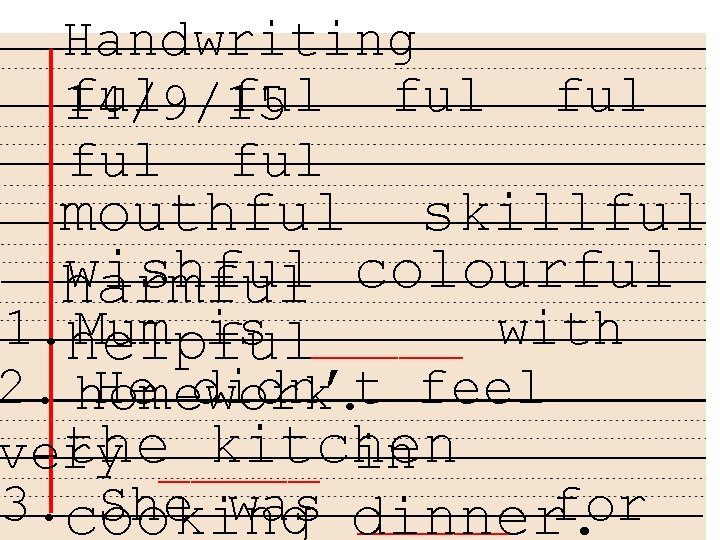 Handwriting
14/9/15
ful ful ful ful
ful ful
mouthful skillful
wishful colourful
harmful
helpful
1. Mum is _____ with
homework.
2. He didn't feel
very _____ in
the kitchen
3. She was _____ for
cooking dinner.